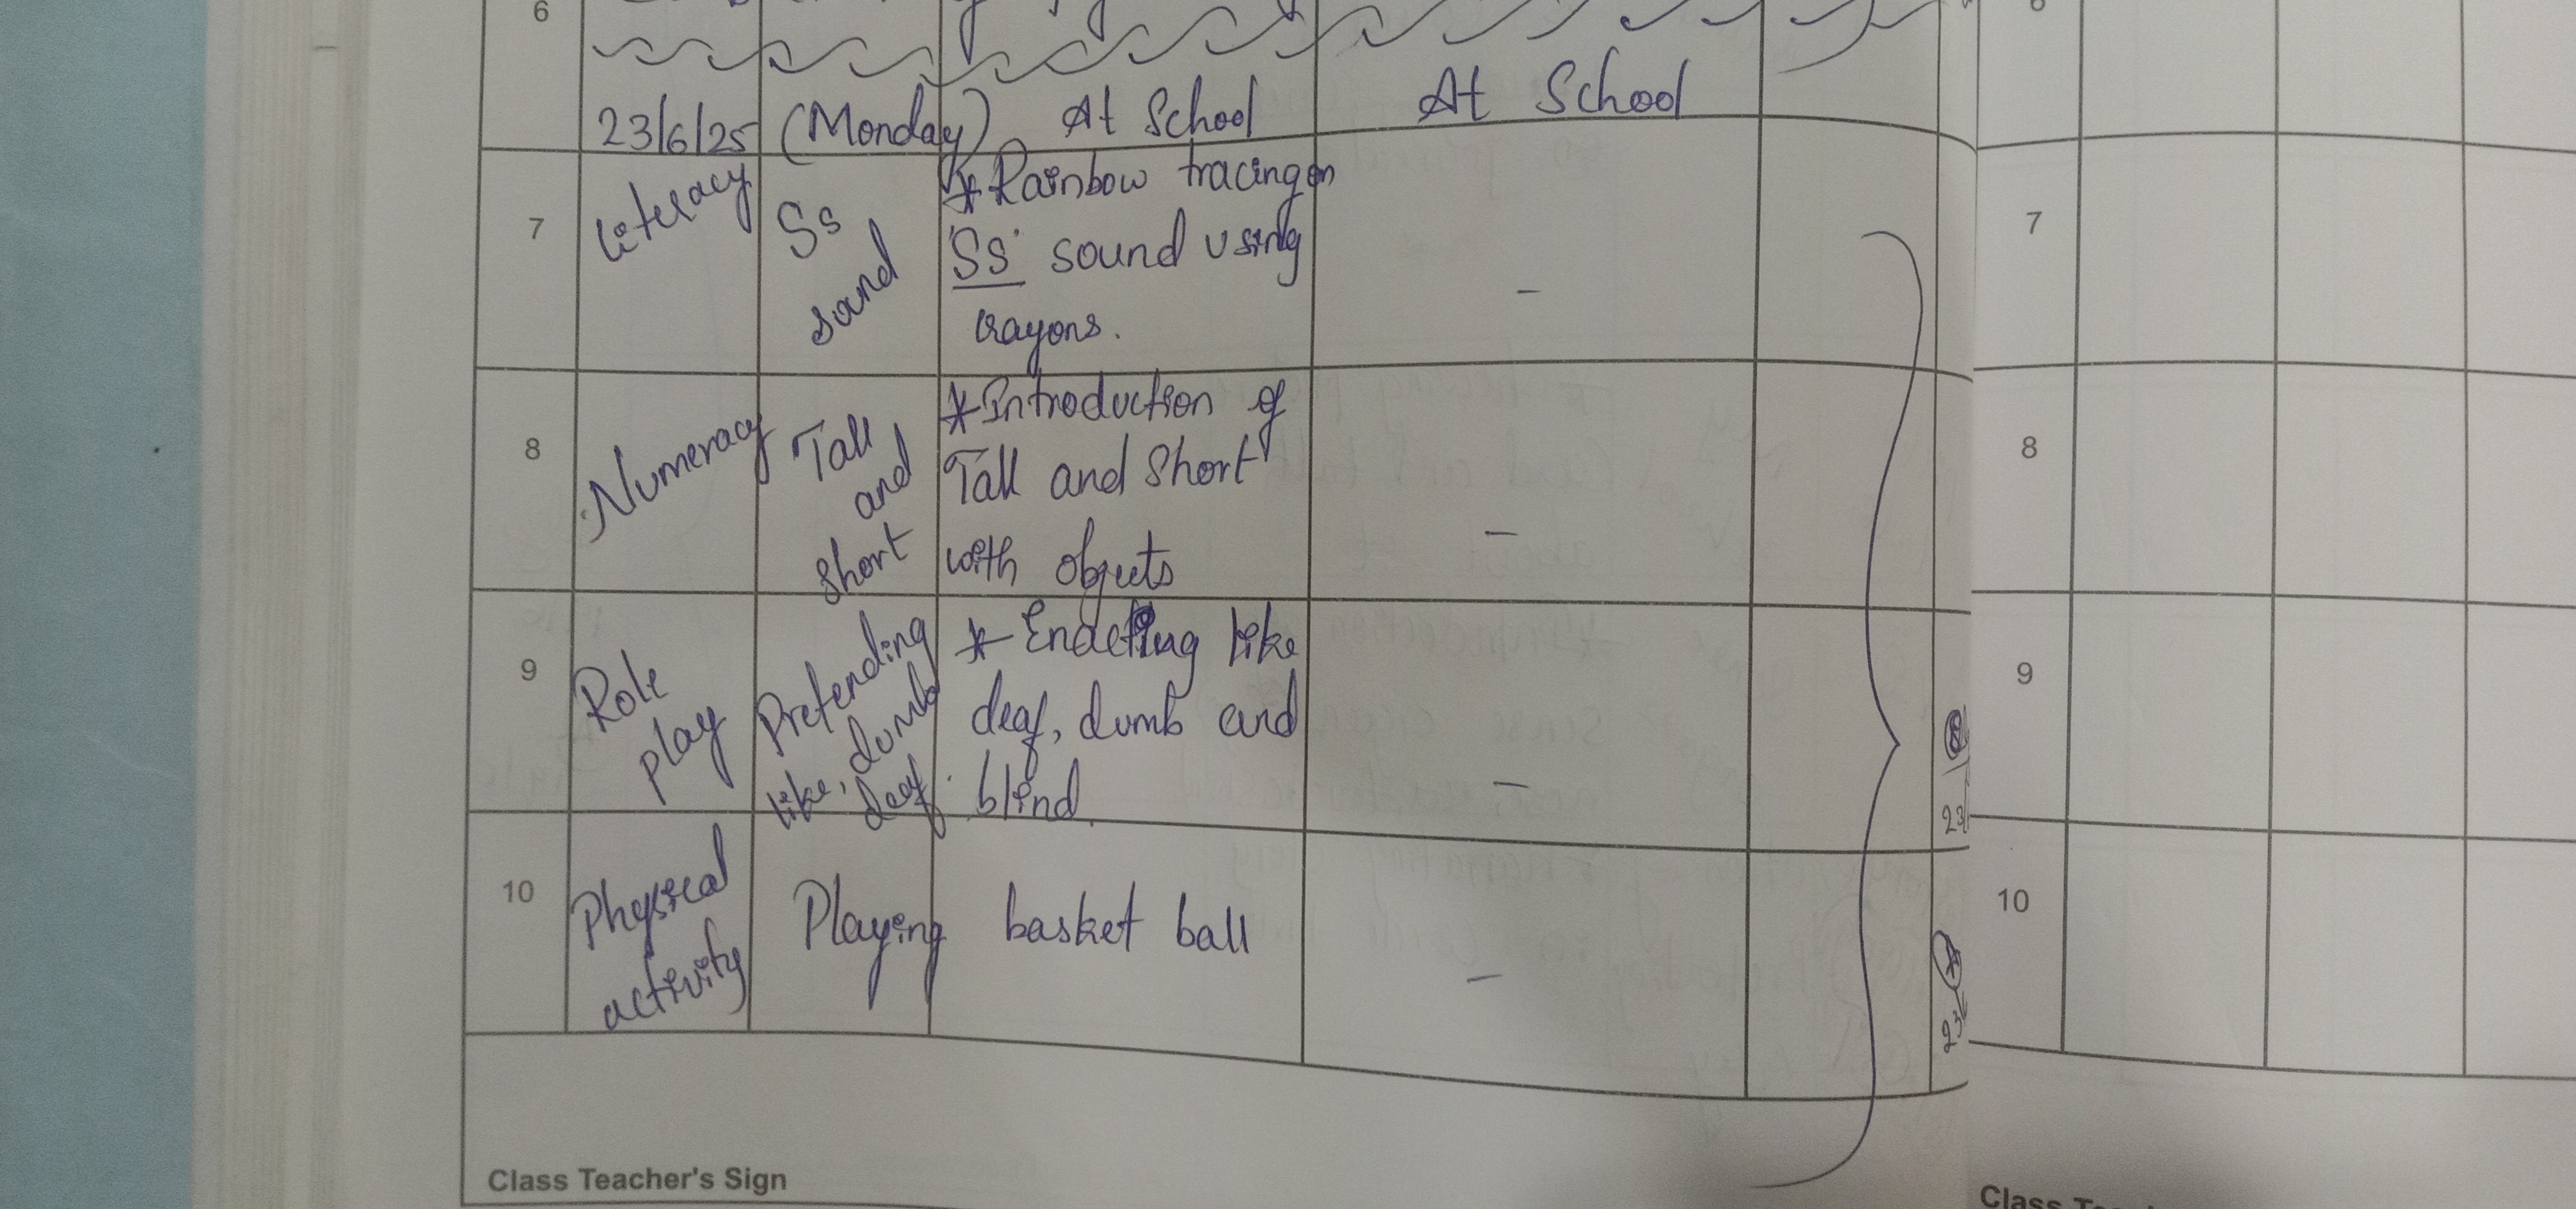 6
23/6/25 (Monday) At School At School
7 Literacy Ss sand * Rainbow tracing on
'Ss' sound using
crayons.
-
8 Numeracy Tall and short * Introduction of
Tall and Short
with objects
-
9 Role play Pretending like, dumb deaf * Enacting like
deaf, dumb and
blind.
-
10 Physical activity Playing basket ball
-
Class Teacher's Sign
6
7
8
9
10
Class